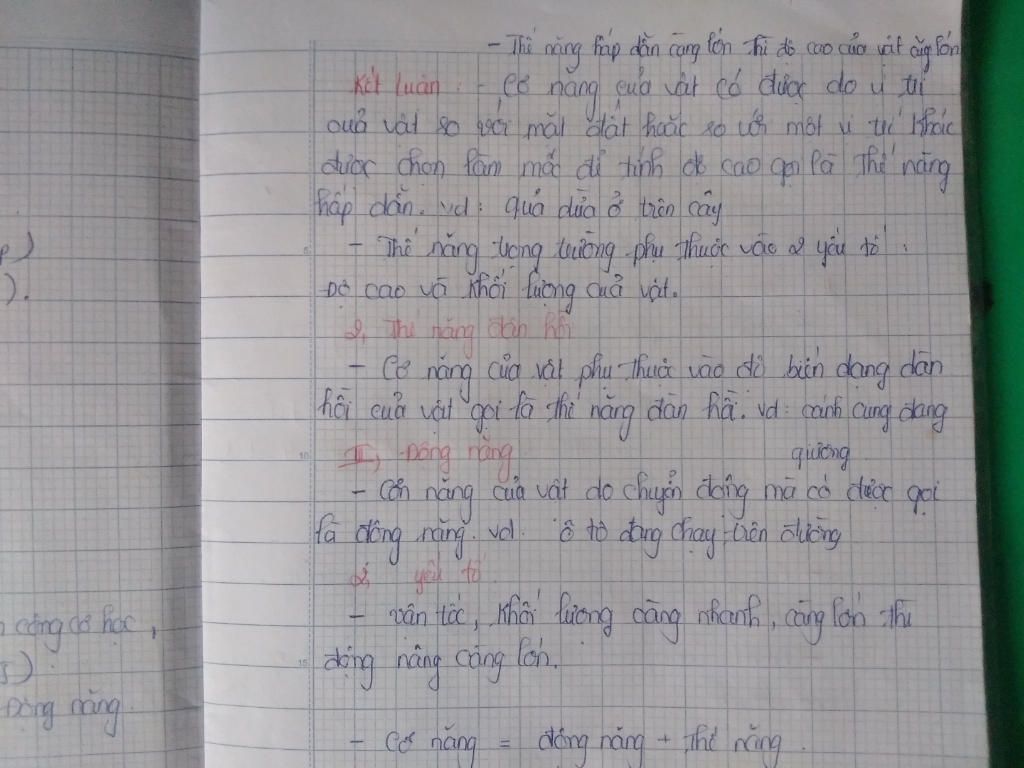 - Thế năng hấp dẫn càng lớn thì độ cao của vật càng lớn
Kết luận: - Cơ năng của vật có được do vị trí
của vật so với mặt đất hoặc so với một vị trí khác
được chọn làm mốc để tính độ cao gọi là thế năng
hấp dẫn. vd: quả dừa ở trên cây
- Thế năng trọng trường phụ thuộc vào 2 yếu tố:
Độ cao và khối lượng của vật.
2, Thế năng đàn hồi
- Cơ năng của vật phụ thuộc vào độ biến dạng đàn
hồi của vật gọi là thế năng đàn hồi. vd: cánh cung đang
giương
II, Động năng
- Cơn năng của vật do chuyển động mà có được gọi
là động năng. vd: ô tô đang chạy trên đường
2, yếu tố
- vận tốc, khối lượng càng nhanh, càng lớn thì
động năng càng lớn.
- Cơ năng = động năng + thế năng.
)
).
công cơ học,
)
Động năng.